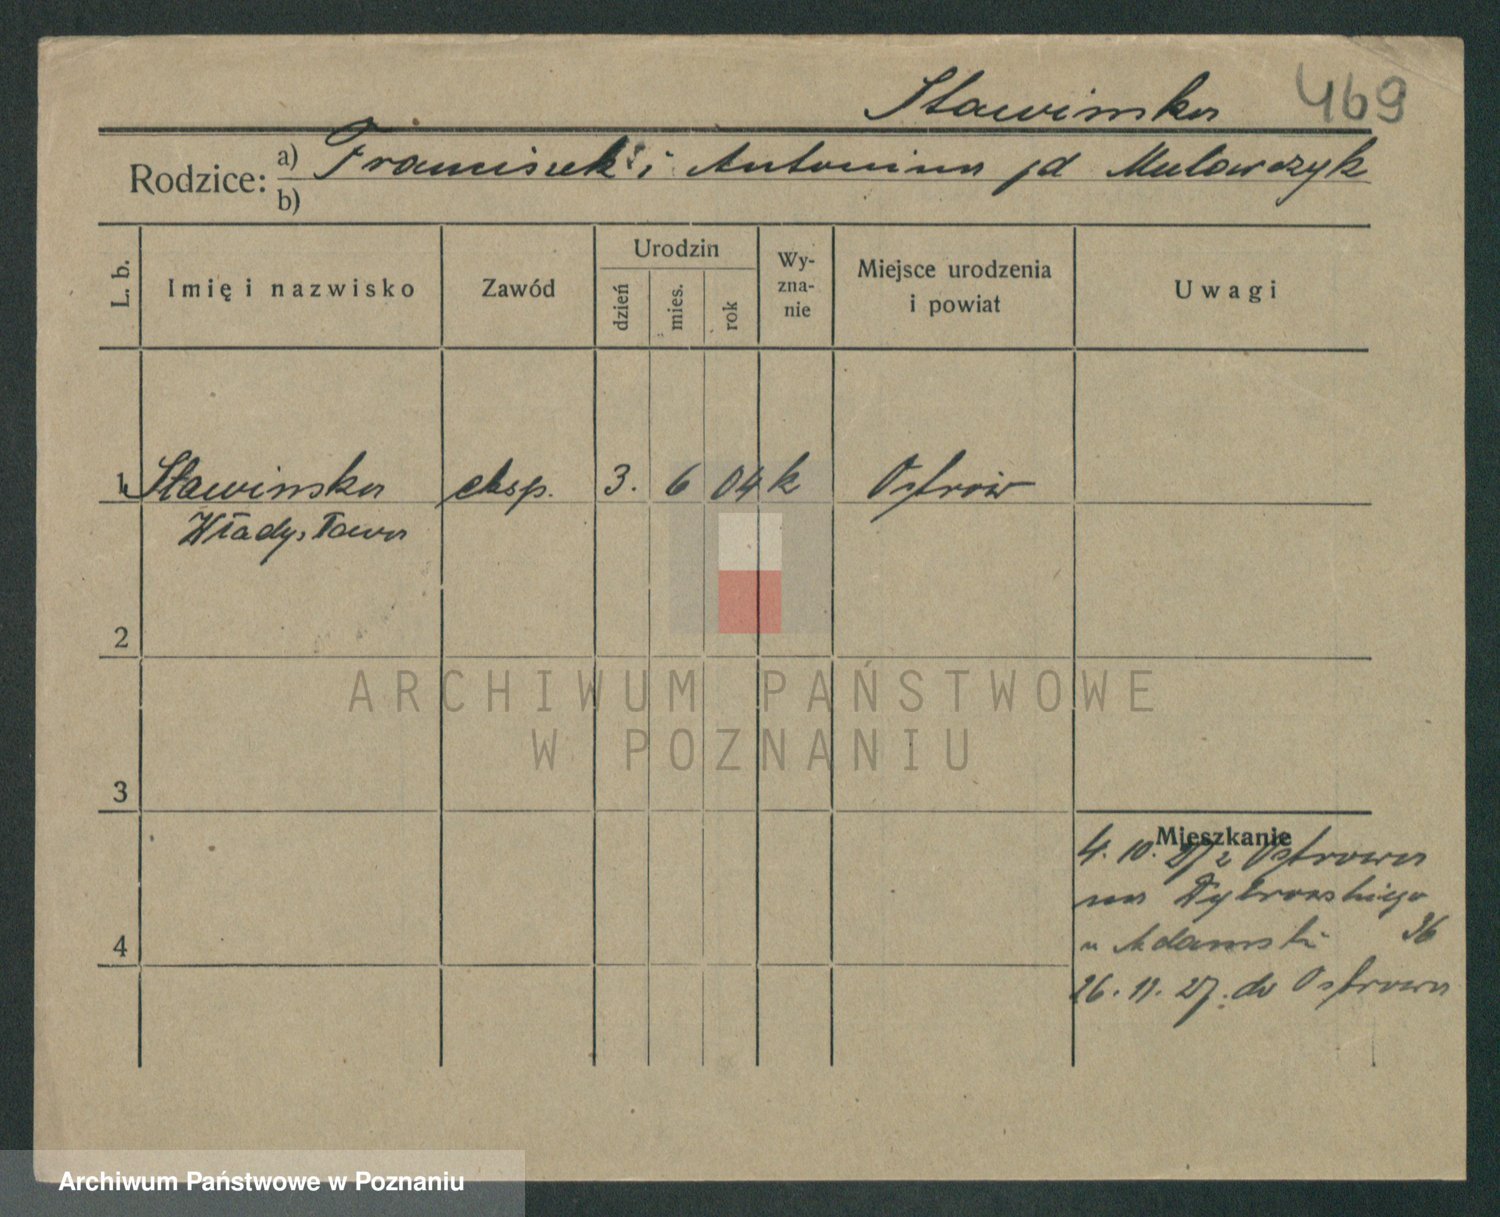 Sławinska 469
Rodzice: a) Franciszek i Antonina jd
b)
L. b.
Imię i nazwisko
Zawód
Urodzin
dzień
mies.
rok
Wy-
zna-
nie
Miejsce urodzenia
i powiat
Uwagi
1 Sławinska eksp. 3. 6 04 k Ostrów
Władysława
2
3
4
Mieszkanie
4. 10. 27 z Ostrowa
na Dąbrowskiego
u Adamski 36
26. 11. 27. do Ostrowa
ARCHIWUM PAŃSTWOWE
W POZNANIU
Archiwum Państwowe w Poznaniu